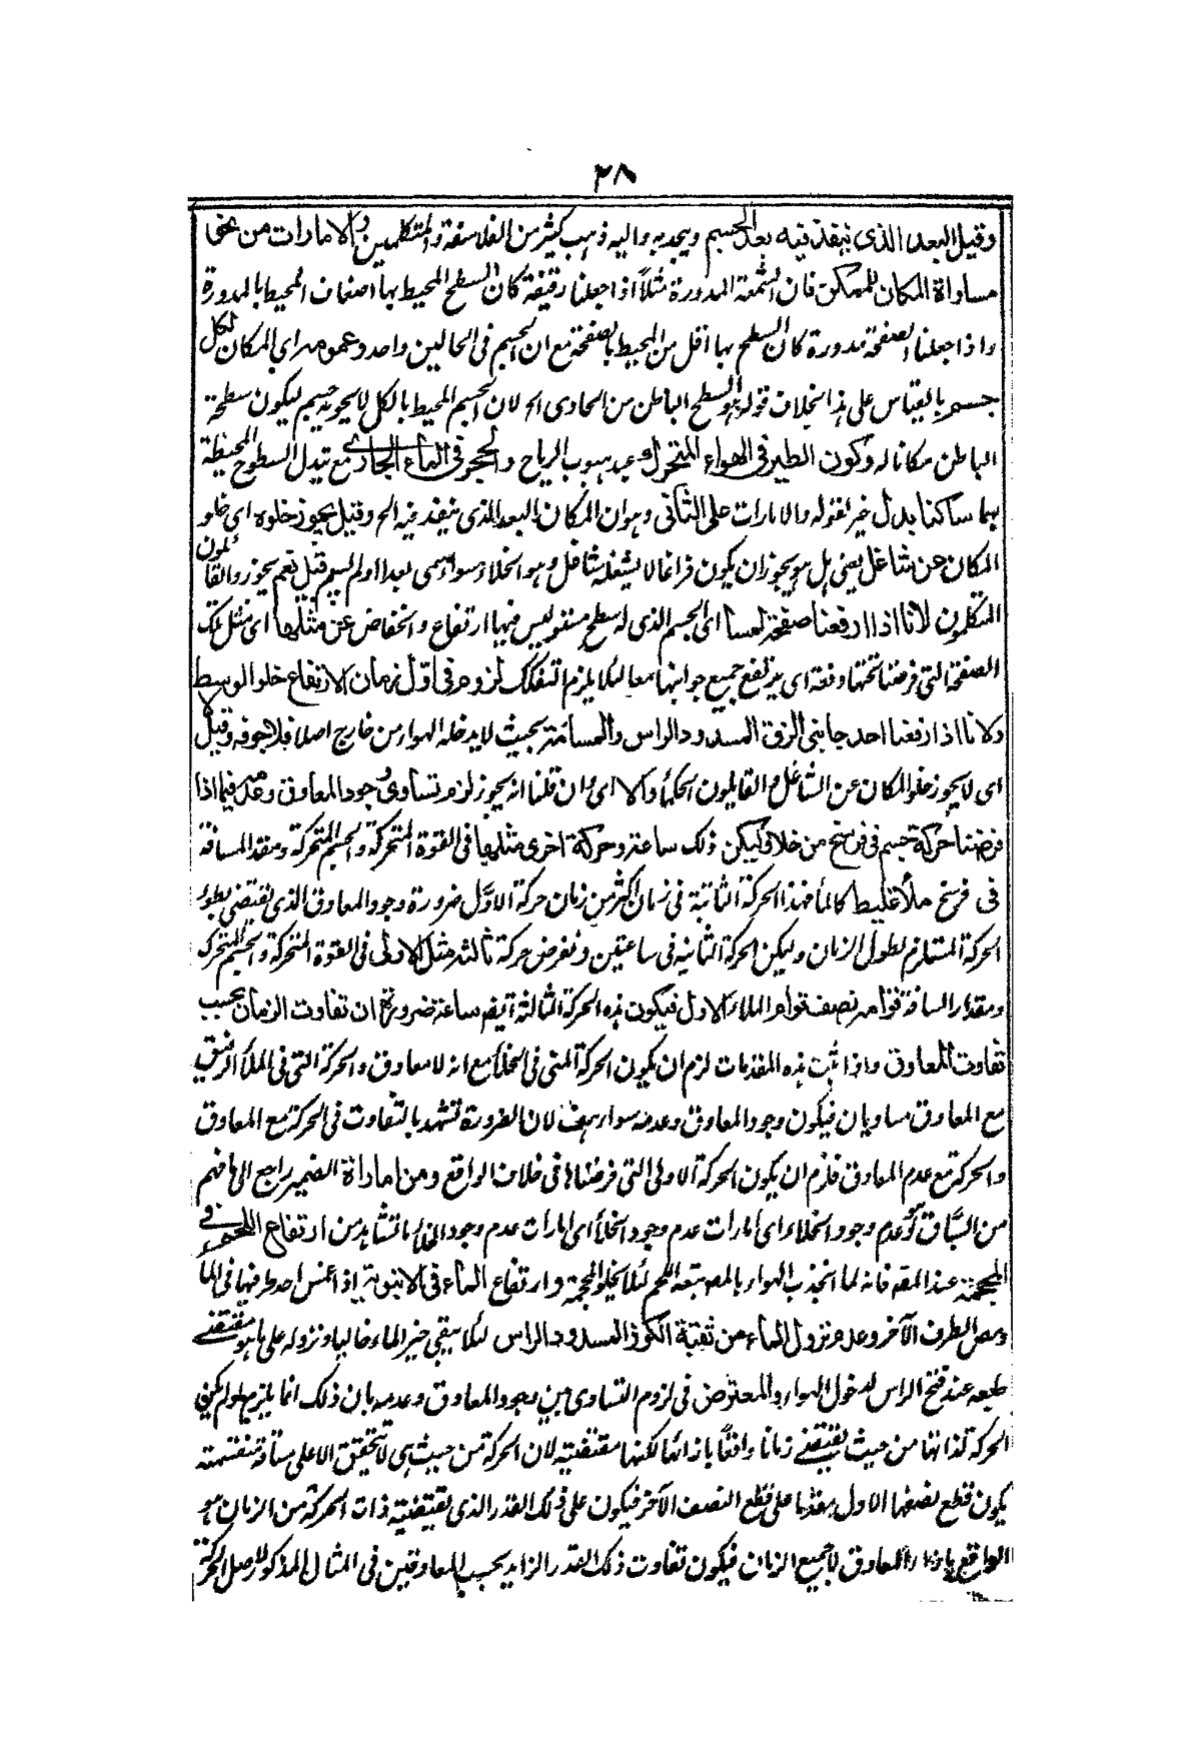 ٢٨
وقيل البعد الذى ينفذ فيه بعد الجسم ويحد به واليه ذهب كثير من الفلاسفة والمتكلمين والامارات من نحو
مساواة المكان للمتمكن فان الشمعة المدورة مثلاً اذا جعلنا رقيقة كان السطح المحيط بها اضعاف المحيط بالمدورة
واذا جعلنا الصفحة مدورة كان السطح بها اقل من المحيط بالصفحة مع ان الجسم فى الحالين واحد وعمومه اى المكان لكل
جسم بالقياس على هذا بخلاف قوله هو السطح الباطن من الحاوى الخ لان الجسم المحيط بالكل لا يحويه جسم ليكون سطحه
الباطن مكانا له وكون الطير فى الهواء المتحرك عند هبوب الرياح والحجر فى الماء الجارى مع تبدل السطوح المحيطة
بهما ساكنا يدل خبر لقوله والامارات على الثانى وهو ان المكان البعد الذى ينفذ فيه الخ وقيل يجوز خلوه اى خلو
المكان عن شاغل يعنى بل هو يجوز ان يكون فراغا لا يشغله شاغل وهو الخلاء سواء سمى بعدا او لم يسم قيل نعم يجوز والقائلون
المتكلمون لانا اذا رفعنا صفحة لمساء اى الجسم الذى له سطح مستو ليس فيها ارتفاع وانخفاض عن مثلها اى مثل تلك
الصفحة التى فرضنا تحتها دفعة اى يرتفع جميع جوانبها معا لئلا يلزم التفكك لزوم فى اول زمان الارتفاع خلو الوسط
ولانا اذا رفعنا احد جانبى الزق المسدود الراس والمسام بحيث لا يدخله الهواء من خارج اصلا خلا جوفه وقيل لا
اى لا يجوز خلو المكان عن الشاغل والقايلون الحكماء والا اى وان قلنا انه يجوز لزم تساوى وجود المعاوق وعدمه فيما اذا
فرضنا حركة جسم فى فرسخ من خلاء وليكن ذلك ساعة وحركة اخرى مثلها فى القوة المتحركة والجسم المتحركة ومقدار المسافة
فى فرسخ ملأ غليظ كالماء فهذا الحركة الثانية فى زمان اكثر من زمان حركة الاول ضرورة وجود المعاوق الذى يقتضى بطوء
الحركة المستلزم لطول الزمان وليكن الحركة الثانية فى ساعتين ونفرض حركة ثالثة مثل الاولى فى القوة المتحركة والجسم المتحرك
ومقدار المسافة قوامه نصف قوام الملاء الاول فيكون هذه الحركة الثالثة ايضا ساعة ضرورة ان تفاوت الزمان بحسب
تفاوت المعاوق واذا ثبت هذه المقدمات لزم ان يكون الحركة التى فى الخلأ مع انه لا معاوق والحركة التى فى الملأ الرقيق
مع المعاوق مساويان فيكون وجود المعاوق وعدمه سواء هف لان الضرورة تشهد بالتفاوت فى الحركة مع المعاوق
والحركة مع عدم المعاوق فلزم ان يكون الحركة الاولى التى فرضناها فى خلاء خلاف الواقع ومن اماراته الضمير راجع الى ما فهم
من السياق وهو عدم وجود الخلاء اى امارات عدم وجود الخلأ اى امارات عدم وجود الخلاء ما نشاهد من ارتفاع اللحم فى
المحجمة عند المص فانه لما انجذب الهواء بالمص تبعه اللحم لئلا يخلو المحجمة وارتفاع الماء فى الانبوبة اذا غمس احد طرفيها فى الماء
ومص الطرف الآخر وعدم نزول الماء من ثقبة الكوز المسدود الراس لئلا يبقى حيز الماء خاليا ونزوله على ما هو مقتضى
طبعه عند فتح الراس لدخول الهواء والمعترض فى لزوم التساوى بين وجود المعاوق وعدمه بان ذلك انما يلزم لو لم يكن
الحركة لذاتها من حيث تقتضى زمانا واقعا بازائها لكنها مقتضية لان الحركة من حيث هى لا تتحقق الا على مسافة منقسمة
يكون قطع نصفها الاول مقدما على قطع النصف الآخر فيكون على ذلك القدر الذى تقتضيه ذات الحركة من الزمان هو
الواقع بازاء المعاوق لا جميع الزمان فيكون تفاوت ذلك القدر الزايد بحسب المعاوقين فى المثال المذكور لاصل الحركة